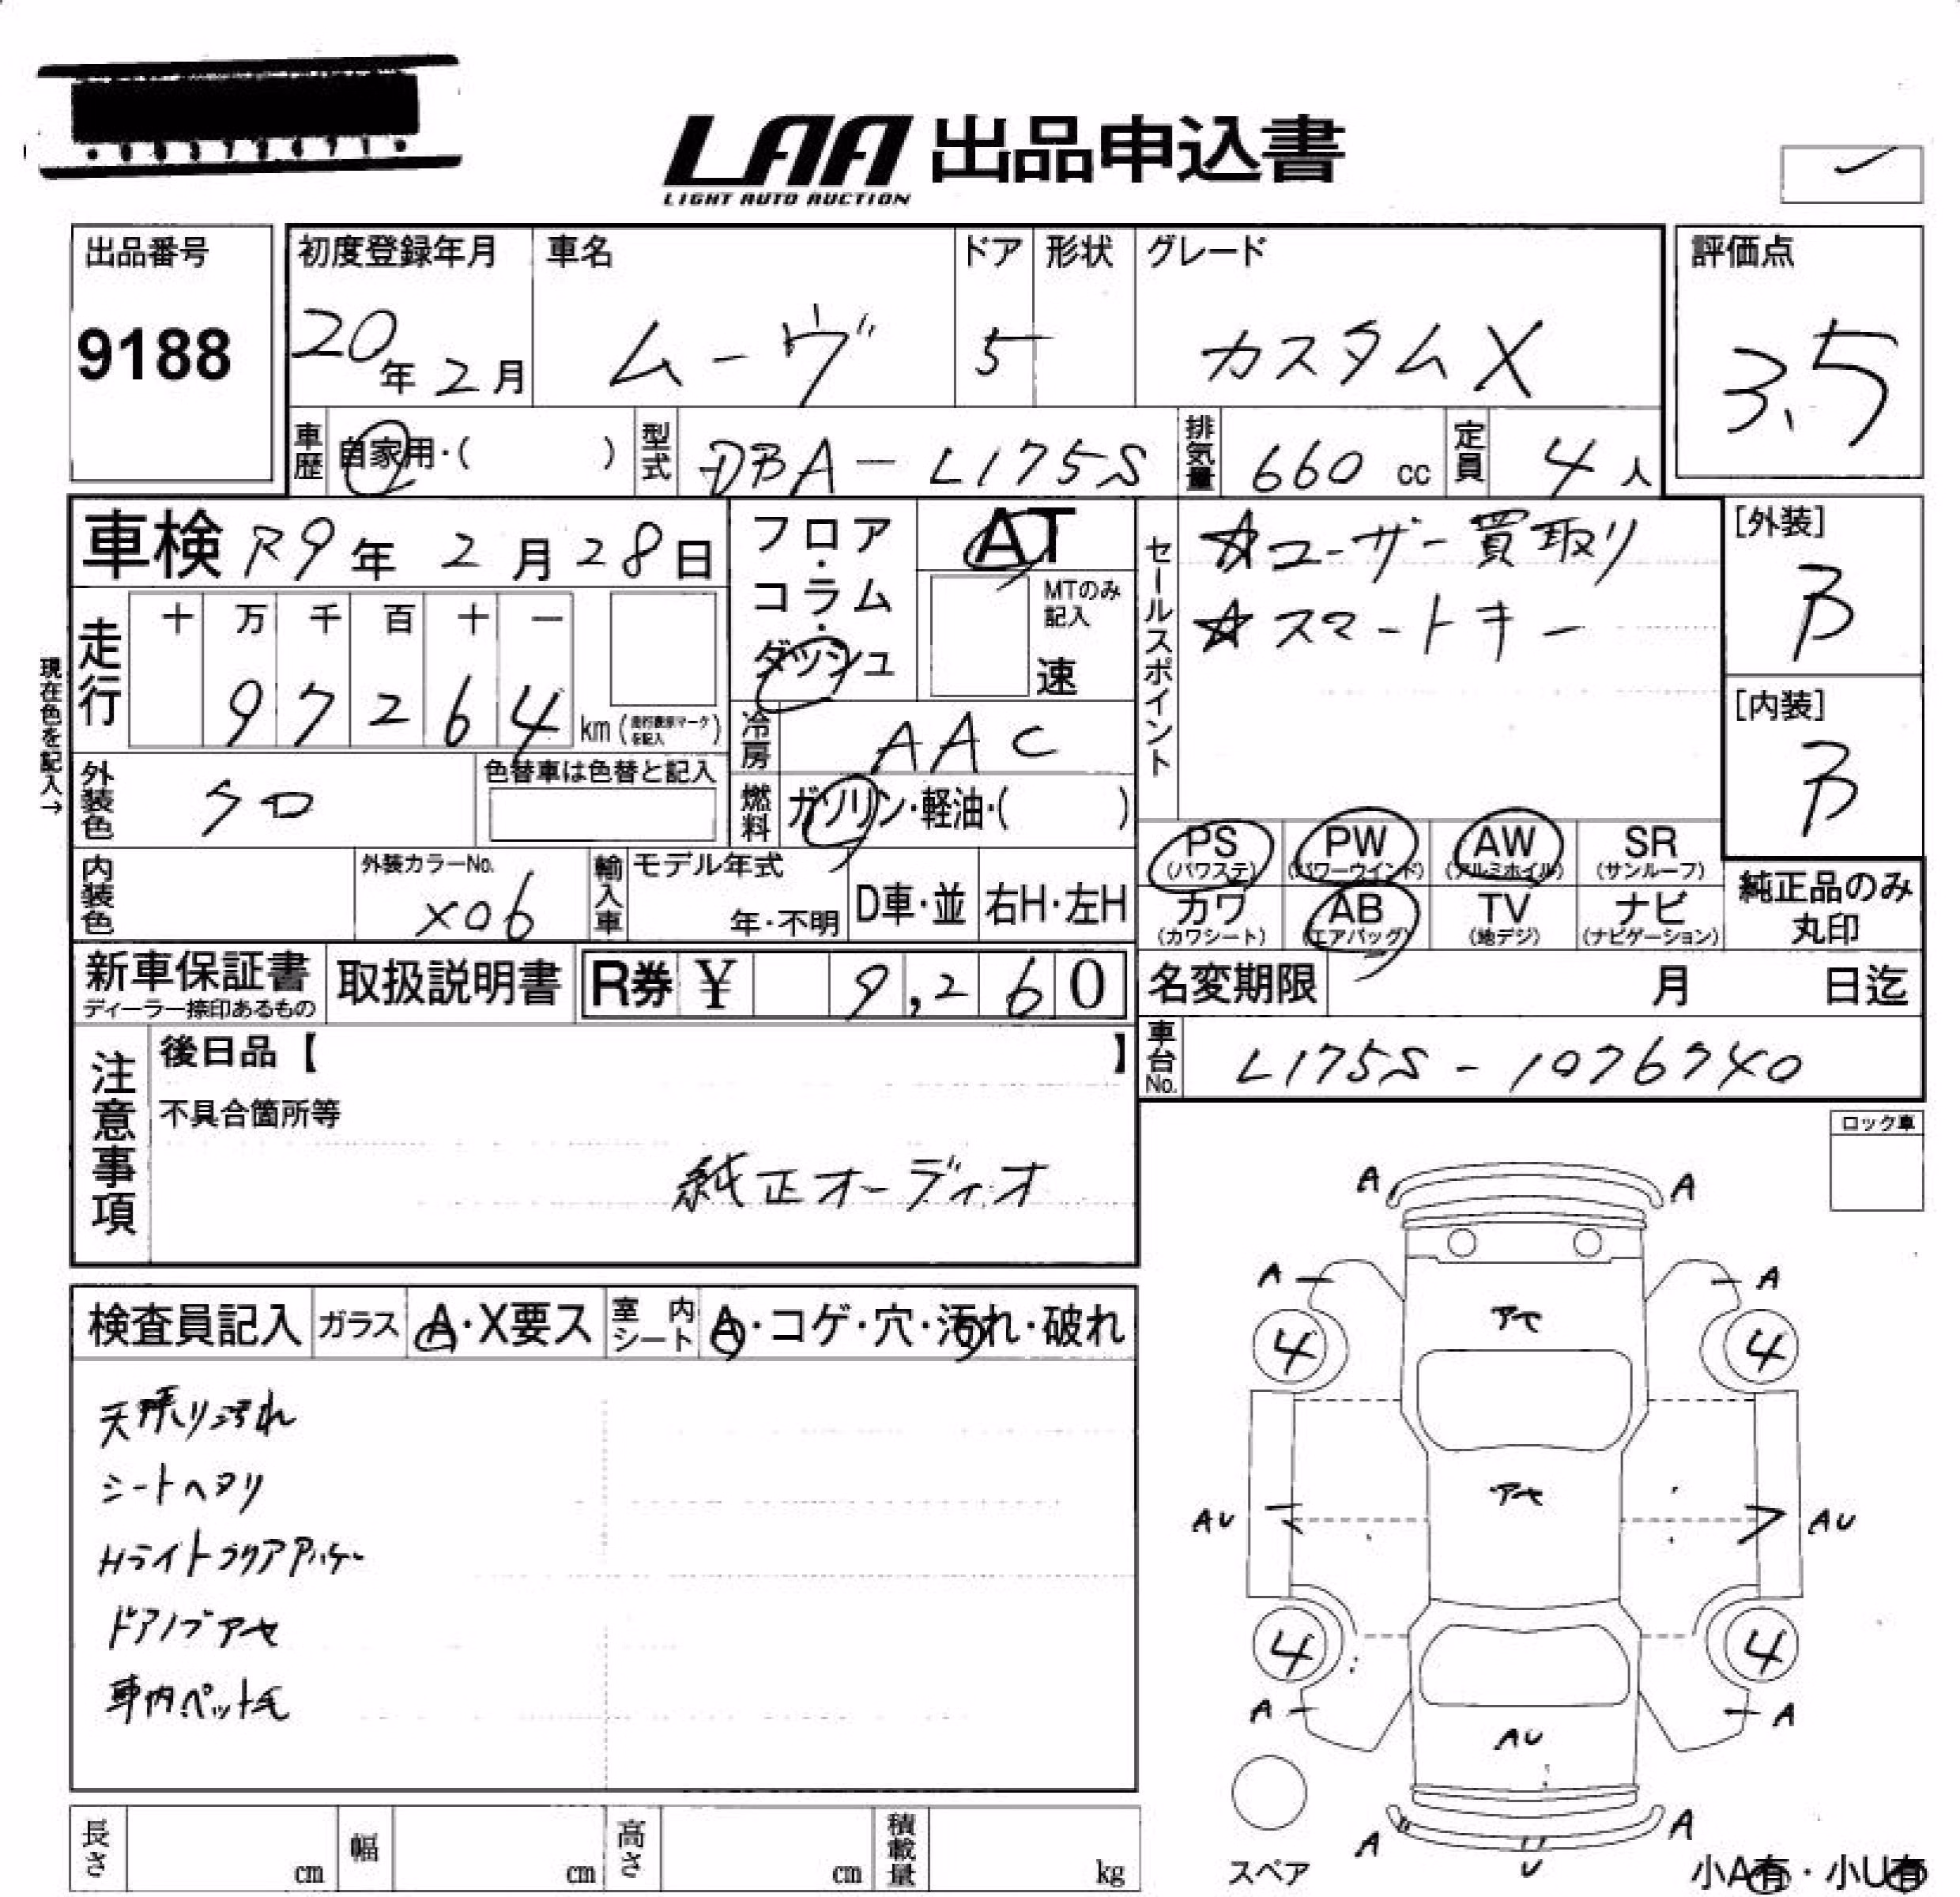 LAA 出品申込書
LIGHT AUTO AUCTION
出品番号
9188
初度登録年月
20年2月
車名
ムーヴ
ドア
5
形状
グレード
カスタムX
評価点
3.5
車歴
自家用・( )
型式
DBA-L175S
排気量
660 cc
定員
4人
車検 R9年2月28日
フロア・コラム・ダッシュ
AT
MTのみ記入
速
セールスポイント
☆ユーザー買取り
☆スマートキー
[外装]
B
[内装]
B
現在色を記入→
走行
十 万 千 百 十 一
9 7 2 6 4 km (走行表示マークを記入)
冷房
AAC
外装色
クロ
色替車は色替と記入
燃料
ガソリン・軽油・( )
PS (パワステ)
PW (パワーウインド)
AW (アルミホイル)
SR (サンルーフ)
カワ (カワシート)
AB (エアバッグ)
TV (地デジ)
ナビ (ナビゲーション)
純正品のみ丸印
内装色
外装カラーNo.
X06
輸入車
モデル年式
年・不明
D車・並
右H・左H
新車保証書
ディーラー捺印あるもの
取扱説明書
R券 ¥ 9,260
名変期限 月 日迄
車台No.
L175S-1076740
注意事項
後日品【 】
不具合箇所等
純正オーディオ
ロック車
検査員記入
ガラス
A・X要ス
室内シート
A・コゲ・穴・汚れ・破れ
天張り汚れ
シートヘタリ
Hライトクリアハゲ
ドアノブアセ
車内ペット毛
A A
A A
アセ
4 4
アセ
AU AU
4 4
A A
AU
A A
U
スペア
小A有・小U有
長さ cm
幅 cm
高さ cm
積載量 kg